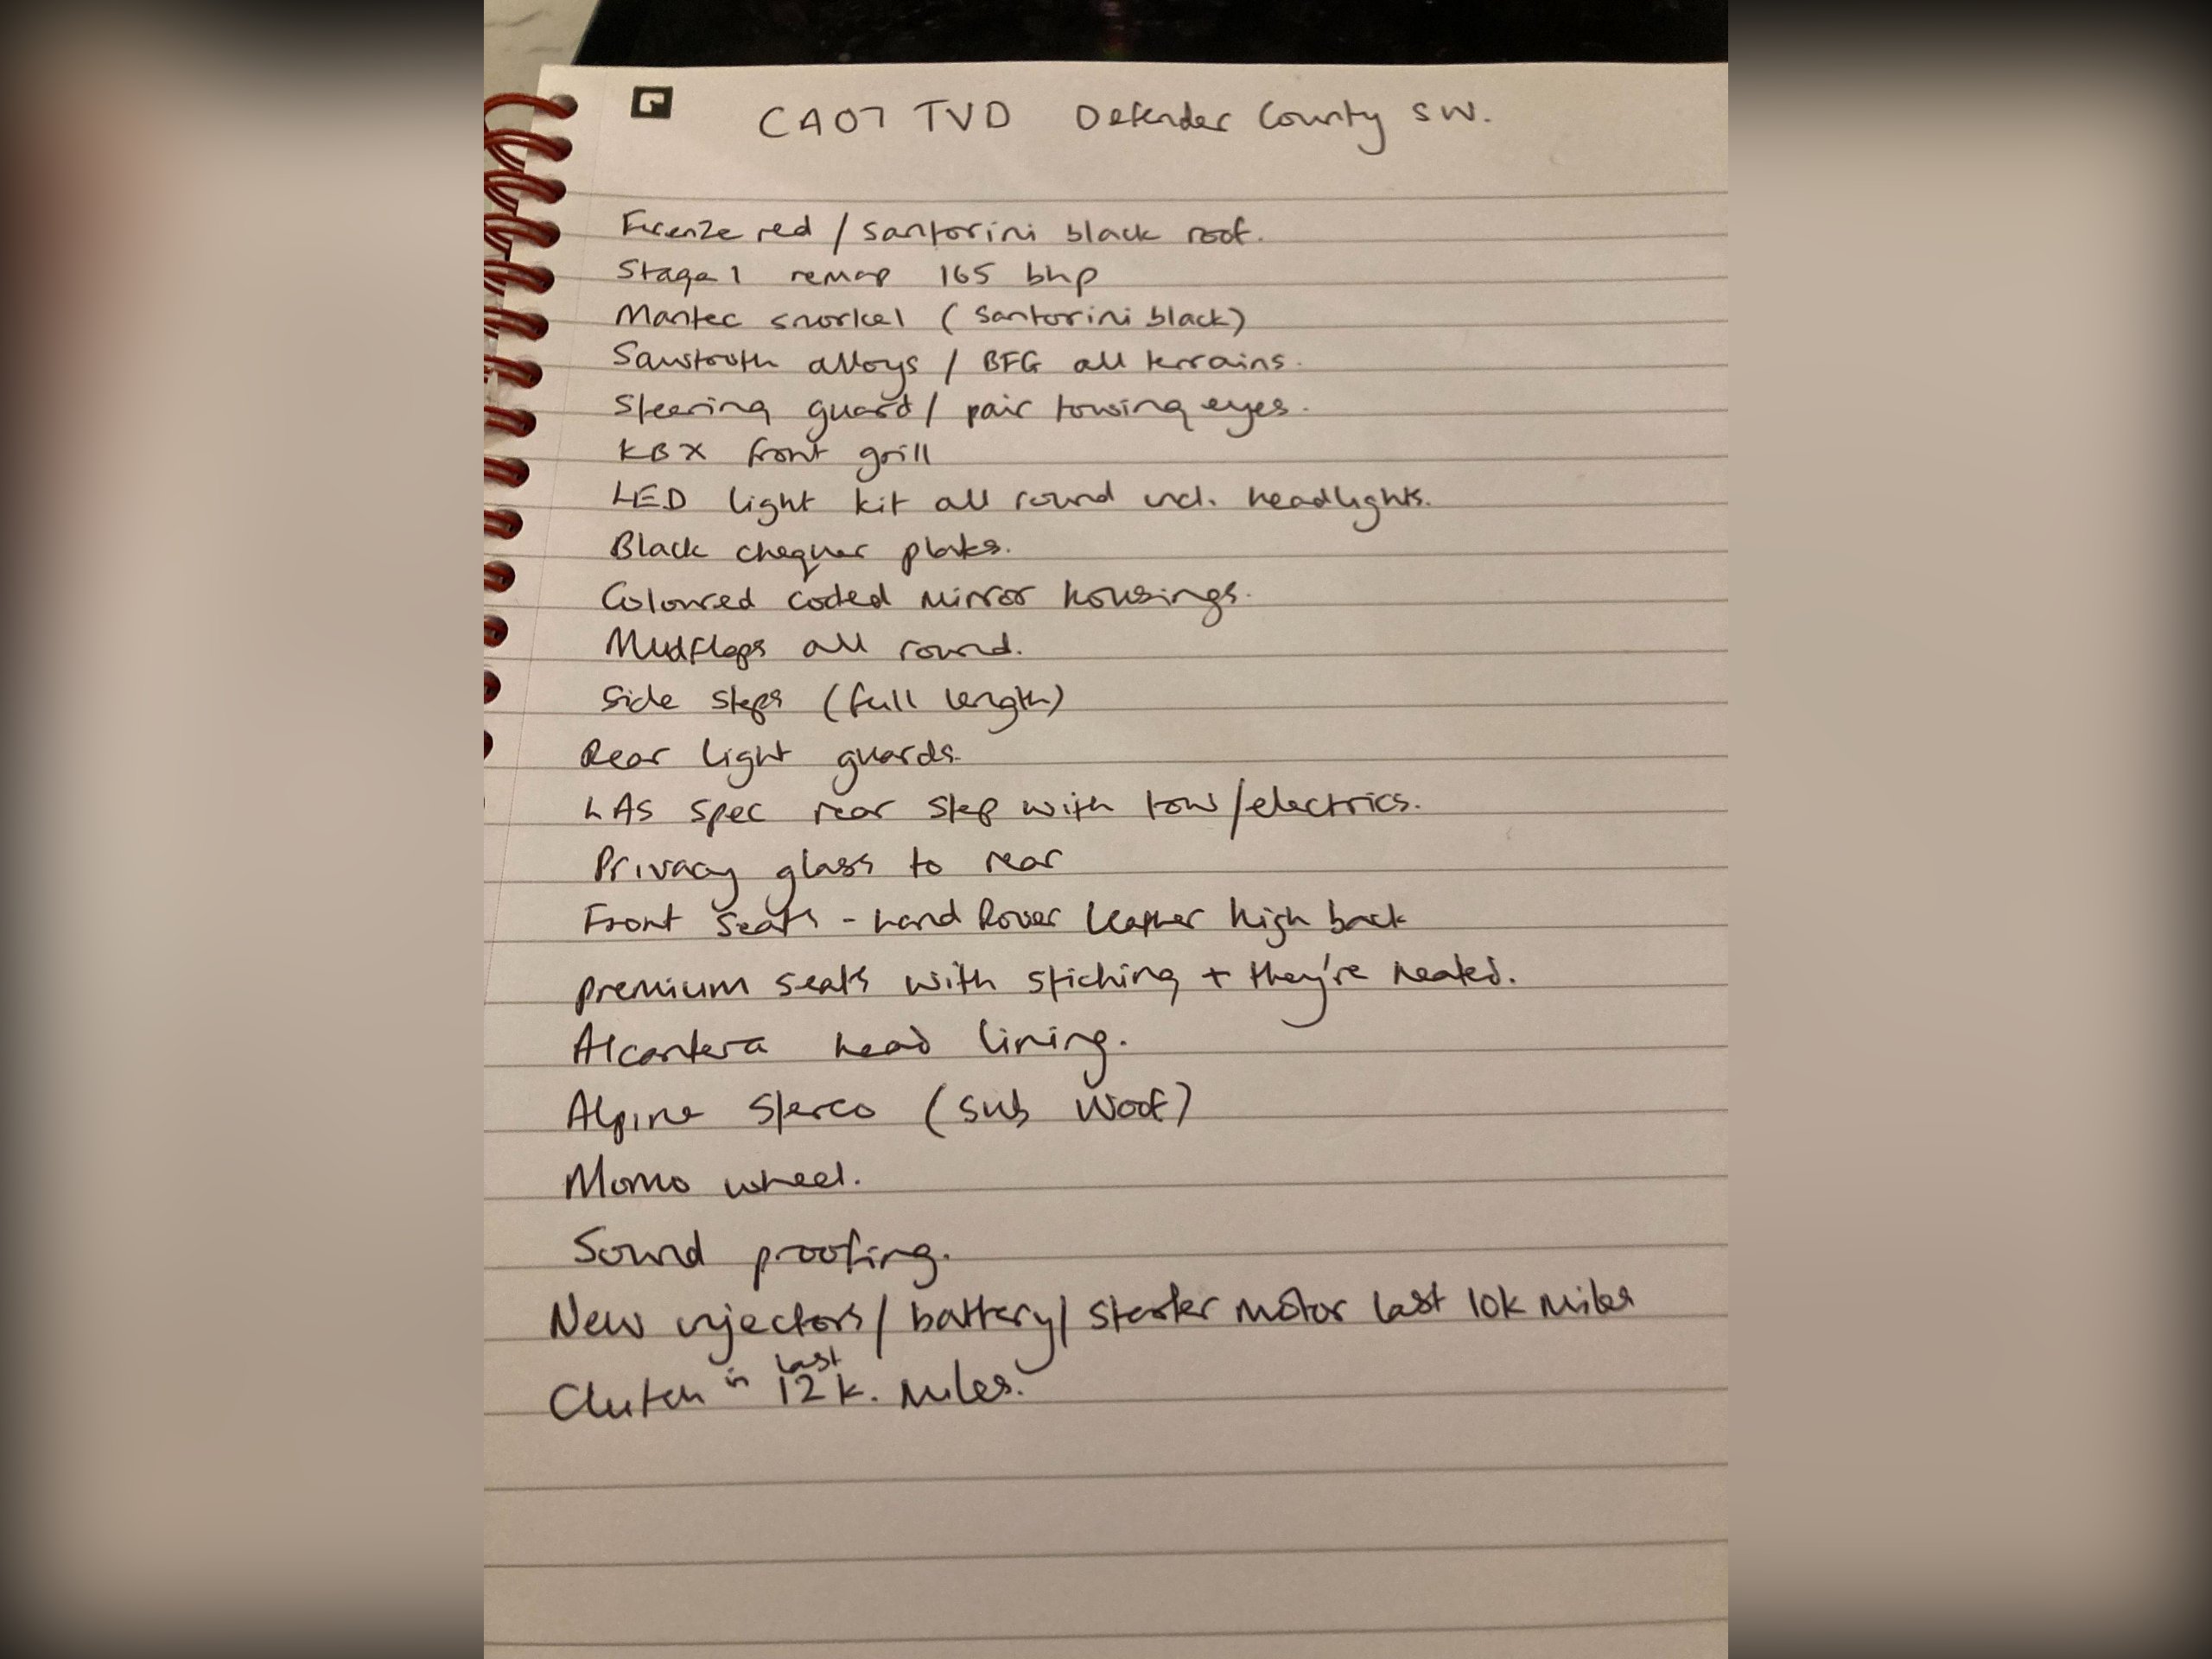 CA07 TVD Defender County SW.
Firenze red / santorini black roof.
Stage 1 remap 165 bhp
Mantec snorkel (santorini black)
Sawtooth alloys / BFG all terrains.
Steering guard / pair towing eyes.
KBX front grill
LED light kit all round incl. headlights.
Black chequer plates.
Coloured coded mirror housings.
Mudflaps all round.
Side steps (full length)
Rear light guards.
LAS spec rear step with tow/electrics.
Privacy glass to rear
Front seats - Land Rover leather high back
premium seats with stiching + they're heated.
Alcantera head lining.
Alpine stereo (sub woof)
Momo wheel.
Sound proofing.
New injectors / battery / starter motor last 10k miles
Clutch in last 12k. miles.